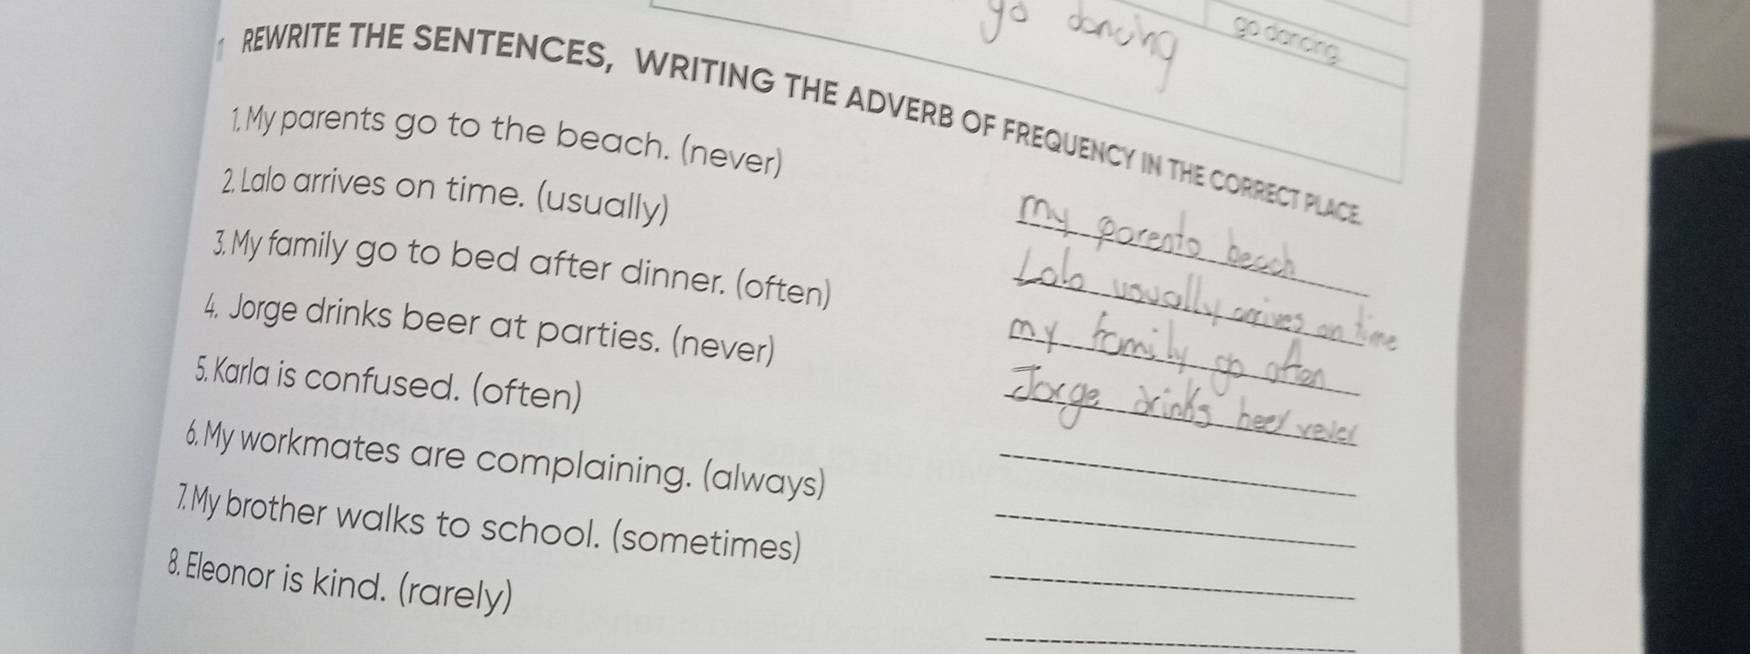 go dancing
go dancing
REWRITE THE SENTENCES, WRITING THE ADVERB OF FREQUENCY IN THE CORRECT PLACE.
1. My parents go to the beach. (never)
my parents beach
2. Lalo arrives on time. (usually)
Lalo usually arrives on time
3. My family go to bed after dinner. (often)
my family go often
4. Jorge drinks beer at parties. (never)
Jorge drinks beer never
5. Karla is confused. (often)
6. My workmates are complaining. (always)
7. My brother walks to school. (sometimes)
8. Eleonor is kind. (rarely)